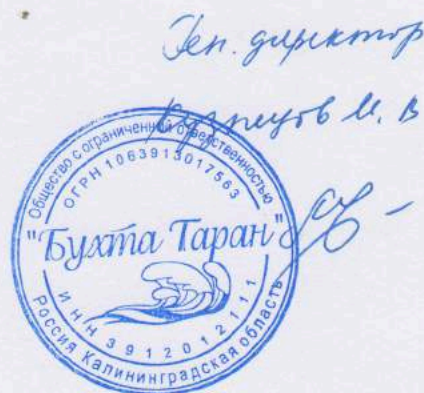 Ген. директор
Кузнецов М. В
Общество с ограниченной ответственностью
ОГРН 1063913017563
"Бухта Таран"
ИНН 3912012111
Россия Калининградская область